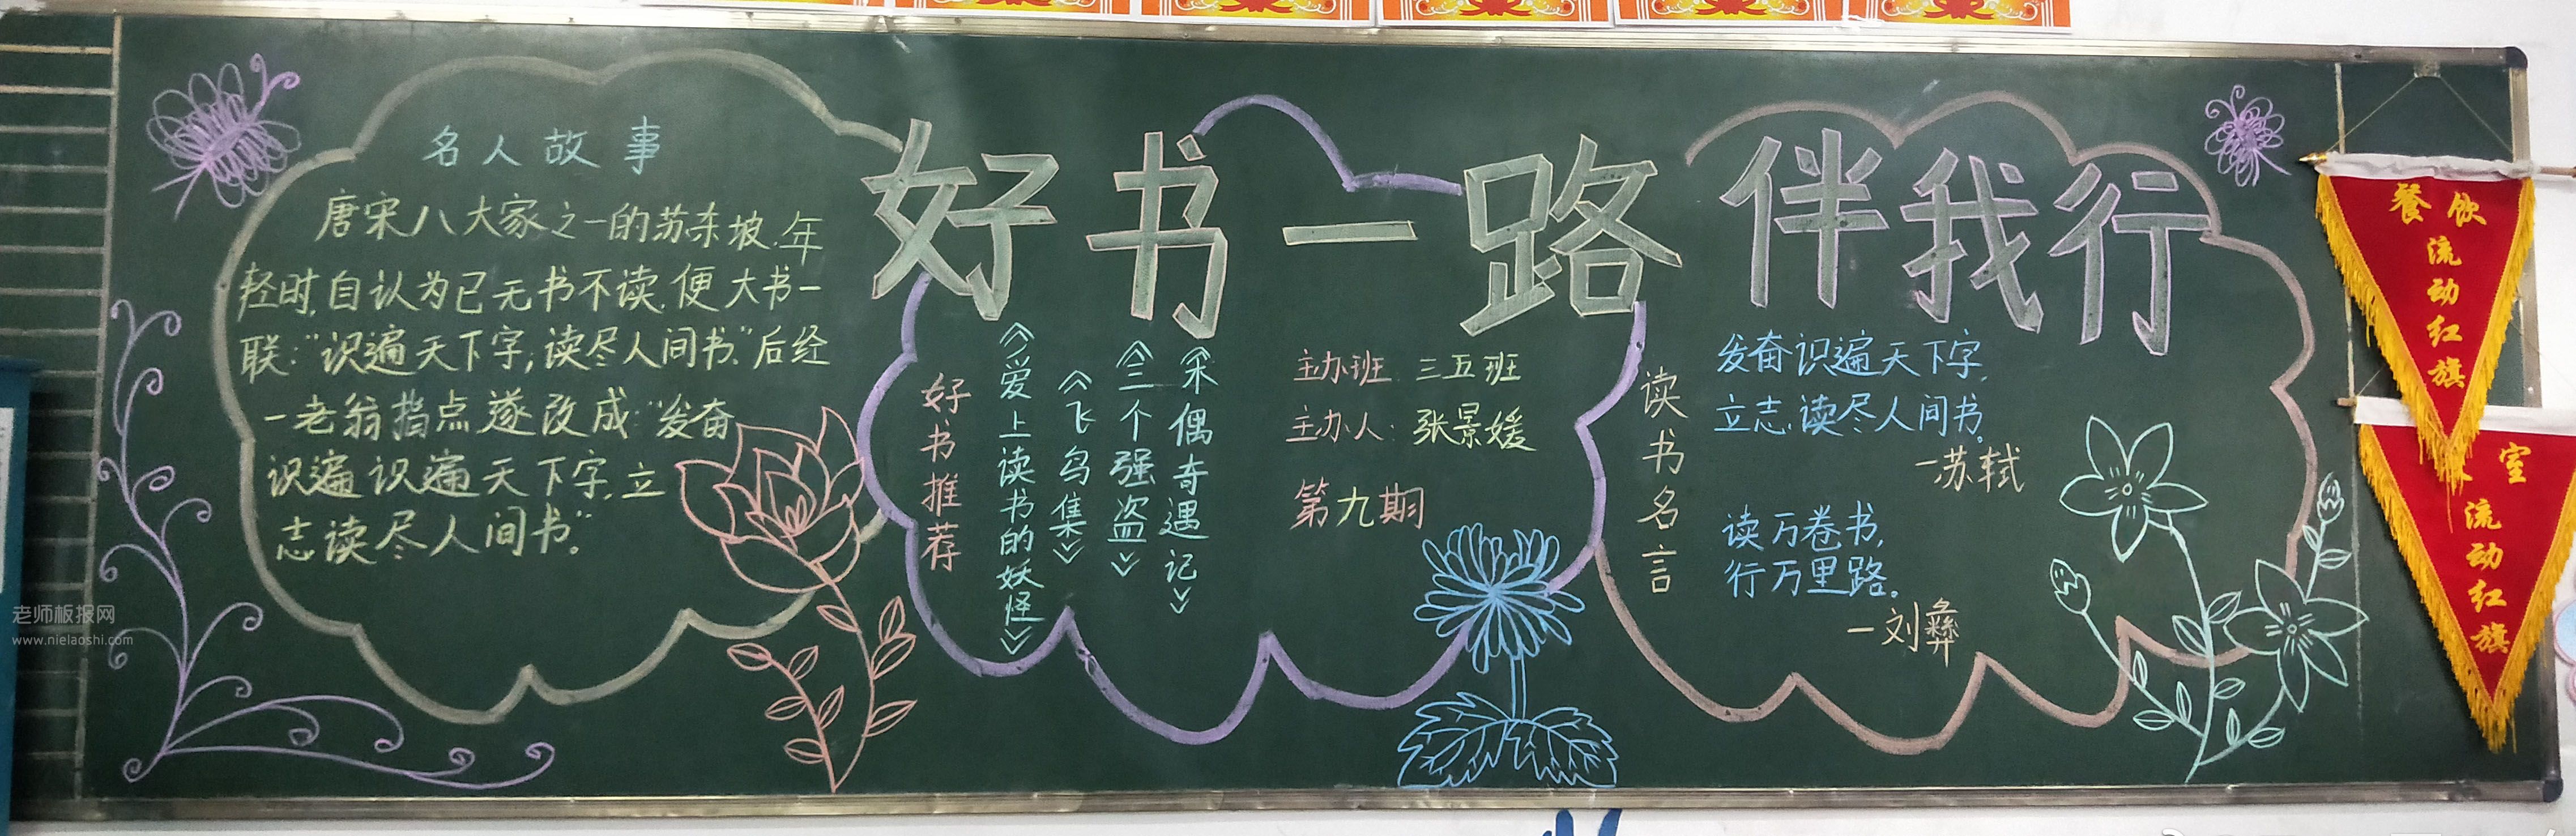 好书一路伴我行
名人故事
唐宋八大家之一的苏东坡,年
轻时,自认为已无书不读,便大书一
联:“识遍天下字,读尽人间书.”后经
一老翁指点遂改成“发奋
识遍识遍天下字,立
志读尽人间书”。
好书推荐
《爱上读书的妖怪》
《飞鸟集》
《三个强盗》
《木偶奇遇记》
主办班:三五班
主办人:张景媛
第九期
读书名言
发奋识遍天下字,
立志读尽人间书。
—苏轼
读万卷书,
行万里路。
—刘彝
餐饮
流动红旗
室
流动红旗
老师板报网
www.nielaoshi.com